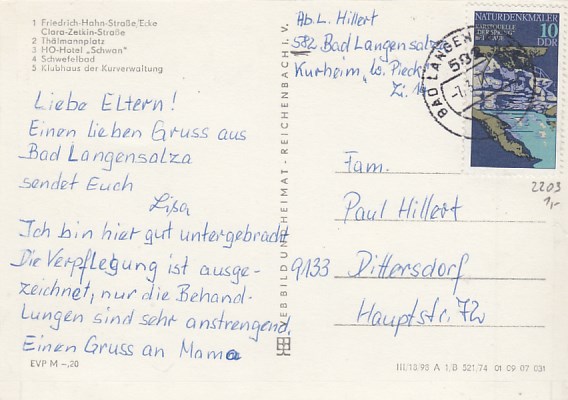 1 Friedrich-Hahn-Straße/Ecke
Clara-Zetkin-Straße
2 Thälmannplatz
3 HO-Hotel „Schwan"
4 Schwefelbad
5 Klubhaus der Kurverwaltung
Liebe Eltern!
Einen lieben Gruss aus
Bad Langensalza
sendet Euch
Lisa
Ich bin hier gut untergebracht
Die Verpflegung ist ausge-
zeichnet, nur die Behand-
lungen sind sehr anstrengend.
Einen Gruss an Mama
EVP M –,20
VEB BILD UND HEIMAT · REICHENBACH i. V.
Ab. L. Hillert
582 Bad Langensalza
Kurheim „W. Pieck"
Zi. 14
BAD LANGEN
582
NATURDENKMÄLER
KARSTQUELLE
10
DDR
2203
1,-
Fam.
Paul Hillert
9133 Dittersdorf
Hauptstr. 72
III/18/98 A 1/B 521/74 01 09 07 031